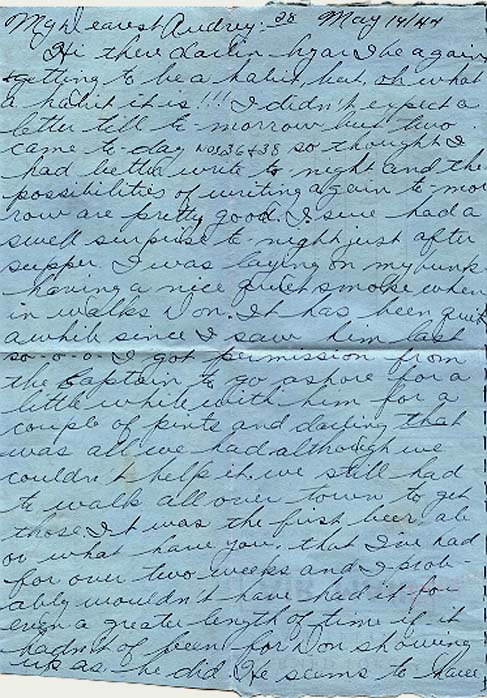 My Dearest Audrey: 38 May 14/44
Hi there darlin hyar I be again
getting to be a habit, but, oh what
a habit it is!!! I didn't expect a
letter till to-morrow but two
came to-day nos 36 & 38 so thought I
had better write to-night and the
possibilities of writing again to-mor
row are pretty good. I sure had a
swell surprise to-night just after
supper. I was laying on my bunk
having a nice quiet smoke when
in walks Don. It has been quite
a while since I saw him last
so-o-o I got permission from
the Captain to go ashore for a
little while with him for a
couple of pints and darling that
was all we had although we
couldn't help it. we still had
to walk all over town to get
those. It was the first beer, ale
or what have you, that I've had
for over two weeks and I prob-
ably wouldn't have had it for
even a greater length of time if it
hadn't of been for Don showing
up as he did. He seems to have